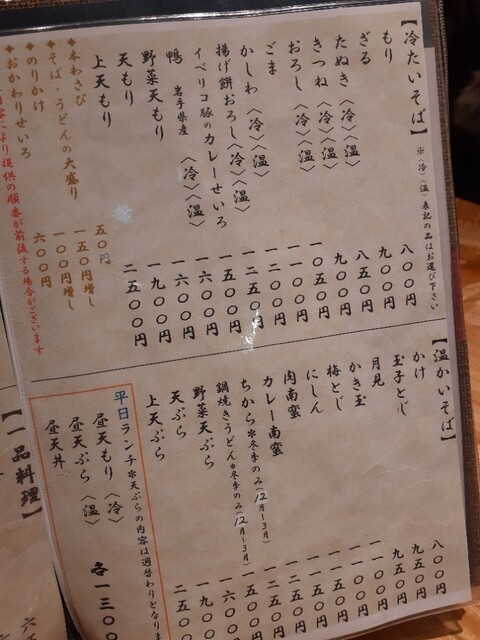 【冷たいそば】 ※〈冷〉〈温〉表記の品はお選び下さい
もり 八〇〇円
ざる 九〇〇円
たぬき〈冷〉〈温〉 八五〇円
きつね〈冷〉〈温〉 九〇〇円
おろし〈冷〉〈温〉 一〇五〇円
ごま 一一〇〇円
かしわ〈冷〉〈温〉 一二〇〇円
揚げ餅おろし〈冷〉〈温〉 一二五〇円
イベリコ豚のカレーせいろ 一五〇〇円
鴨 岩手県産 〈冷〉〈温〉 一六〇〇円
野菜天もり 一六〇〇円
天もり 一九〇〇円
上天もり 二五〇〇円
◆本わさび 五〇円
◆そば・うどんの大盛り 一五〇円増し
◆のりかけ 一〇〇円増し
◆おかわりせいろ 六〇〇円
により提供の順番が前後する場合がございます
【温かいそば】
かけ 八〇〇円
玉子とじ 九五〇円
月見 九五〇円
かき玉
梅とじ
にしん
肉南蛮
カレー南蛮
ちから※冬季のみ(12月〜3月)
鍋焼きうどん※冬季のみ(12月〜3月)
野菜天ぷら 一六〇〇
天ぷら 一九〇〇
上天ぷら 二五〇〇
平日ランチ※天ぷらの内容は週替わりとなりま
昼天もり〈冷〉
昼天ぷら〈温〉 各一三〇〇
昼天丼
【一品料理】